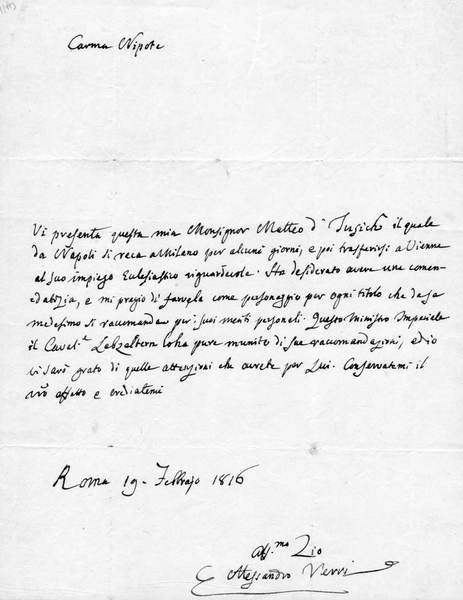 Carma Nipote
Vi presenta questa mia Monsignor Matteo d' il quale
da Napoli si reca a Milano per alcuni giorni, e poi trasferirsi a Vienne
al suo impiego Eclesiastico riguardevole. Ha desiderato avere una comen-
datizia, e mi pregio di farvela come personaggio per ogni titolo che da se
medesimo si racomanda per i suoi meriti personali. Questo Ministro Imperiale
il Caval.r Lebzeltern lo ha pure munito di sue racomandazioni, ed io
vi sarò grato di quelle attenzioni che avrete per Lui. Conservatemi il
vro affetto e credetemi
Roma 19. Febbrajo 1816
Aff.mo Zio
Alessandro Verri